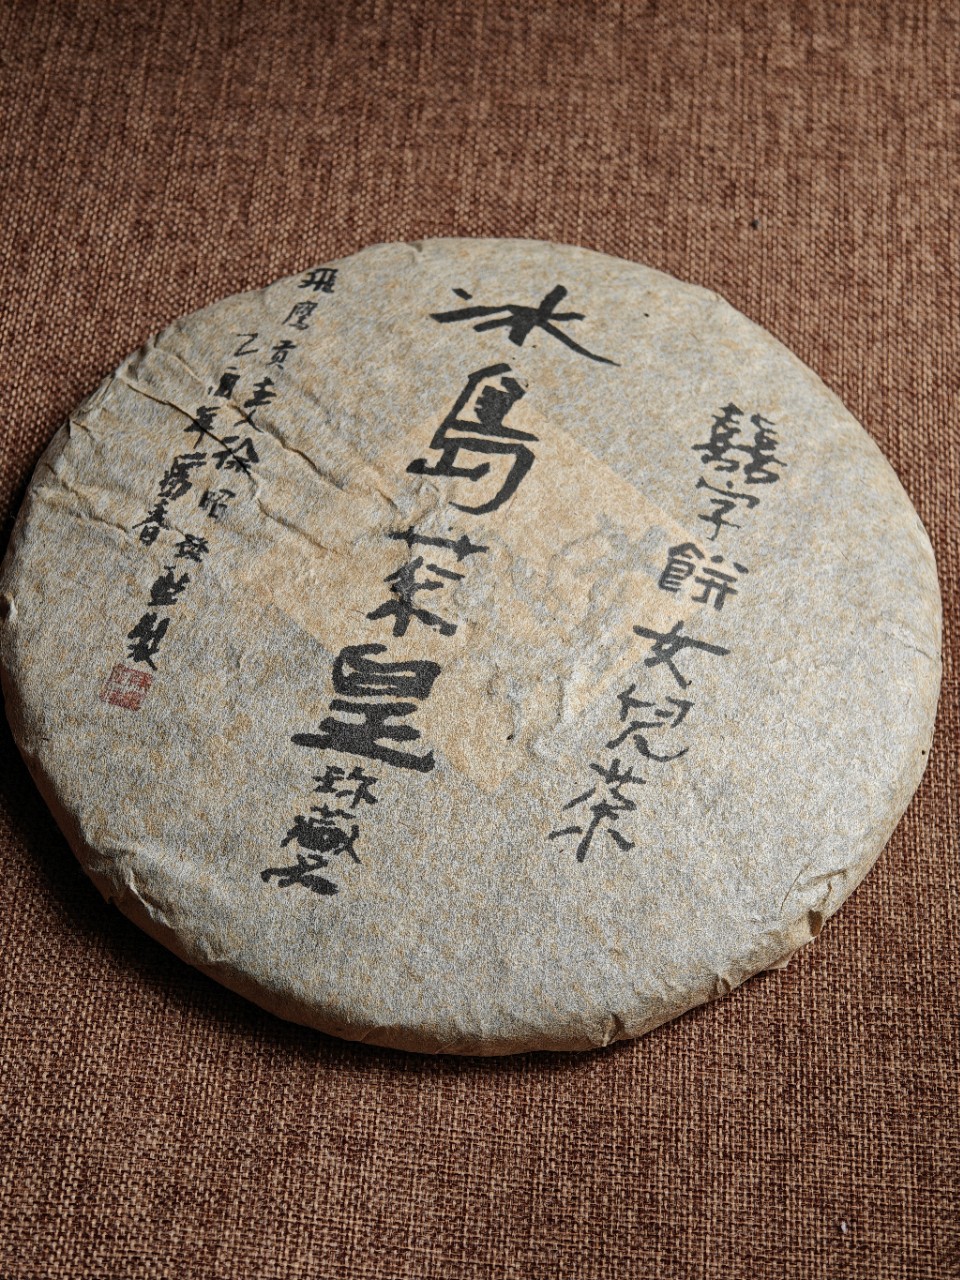 囍字餅女兒茶
冰島茶皇珍藏品
飛鷹貢主人徐昭發監製
乙酉年春